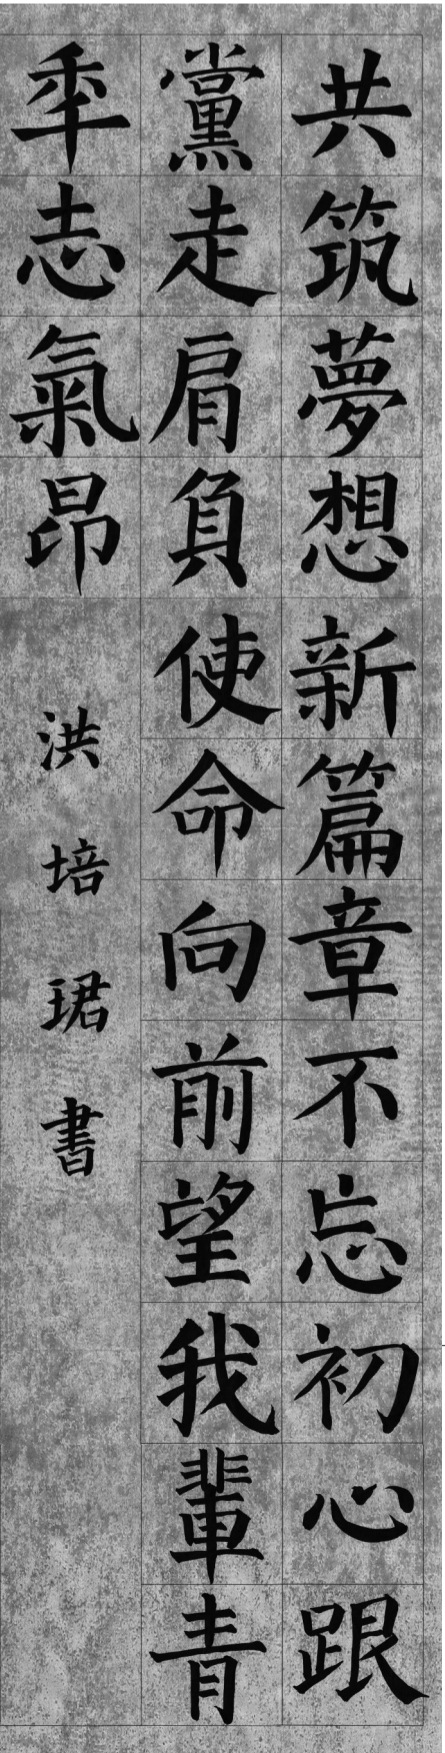 共筑夢想新篇章不忘初心跟
黨走肩負使命向前望我輩青
年志氣昂
洪培珺書